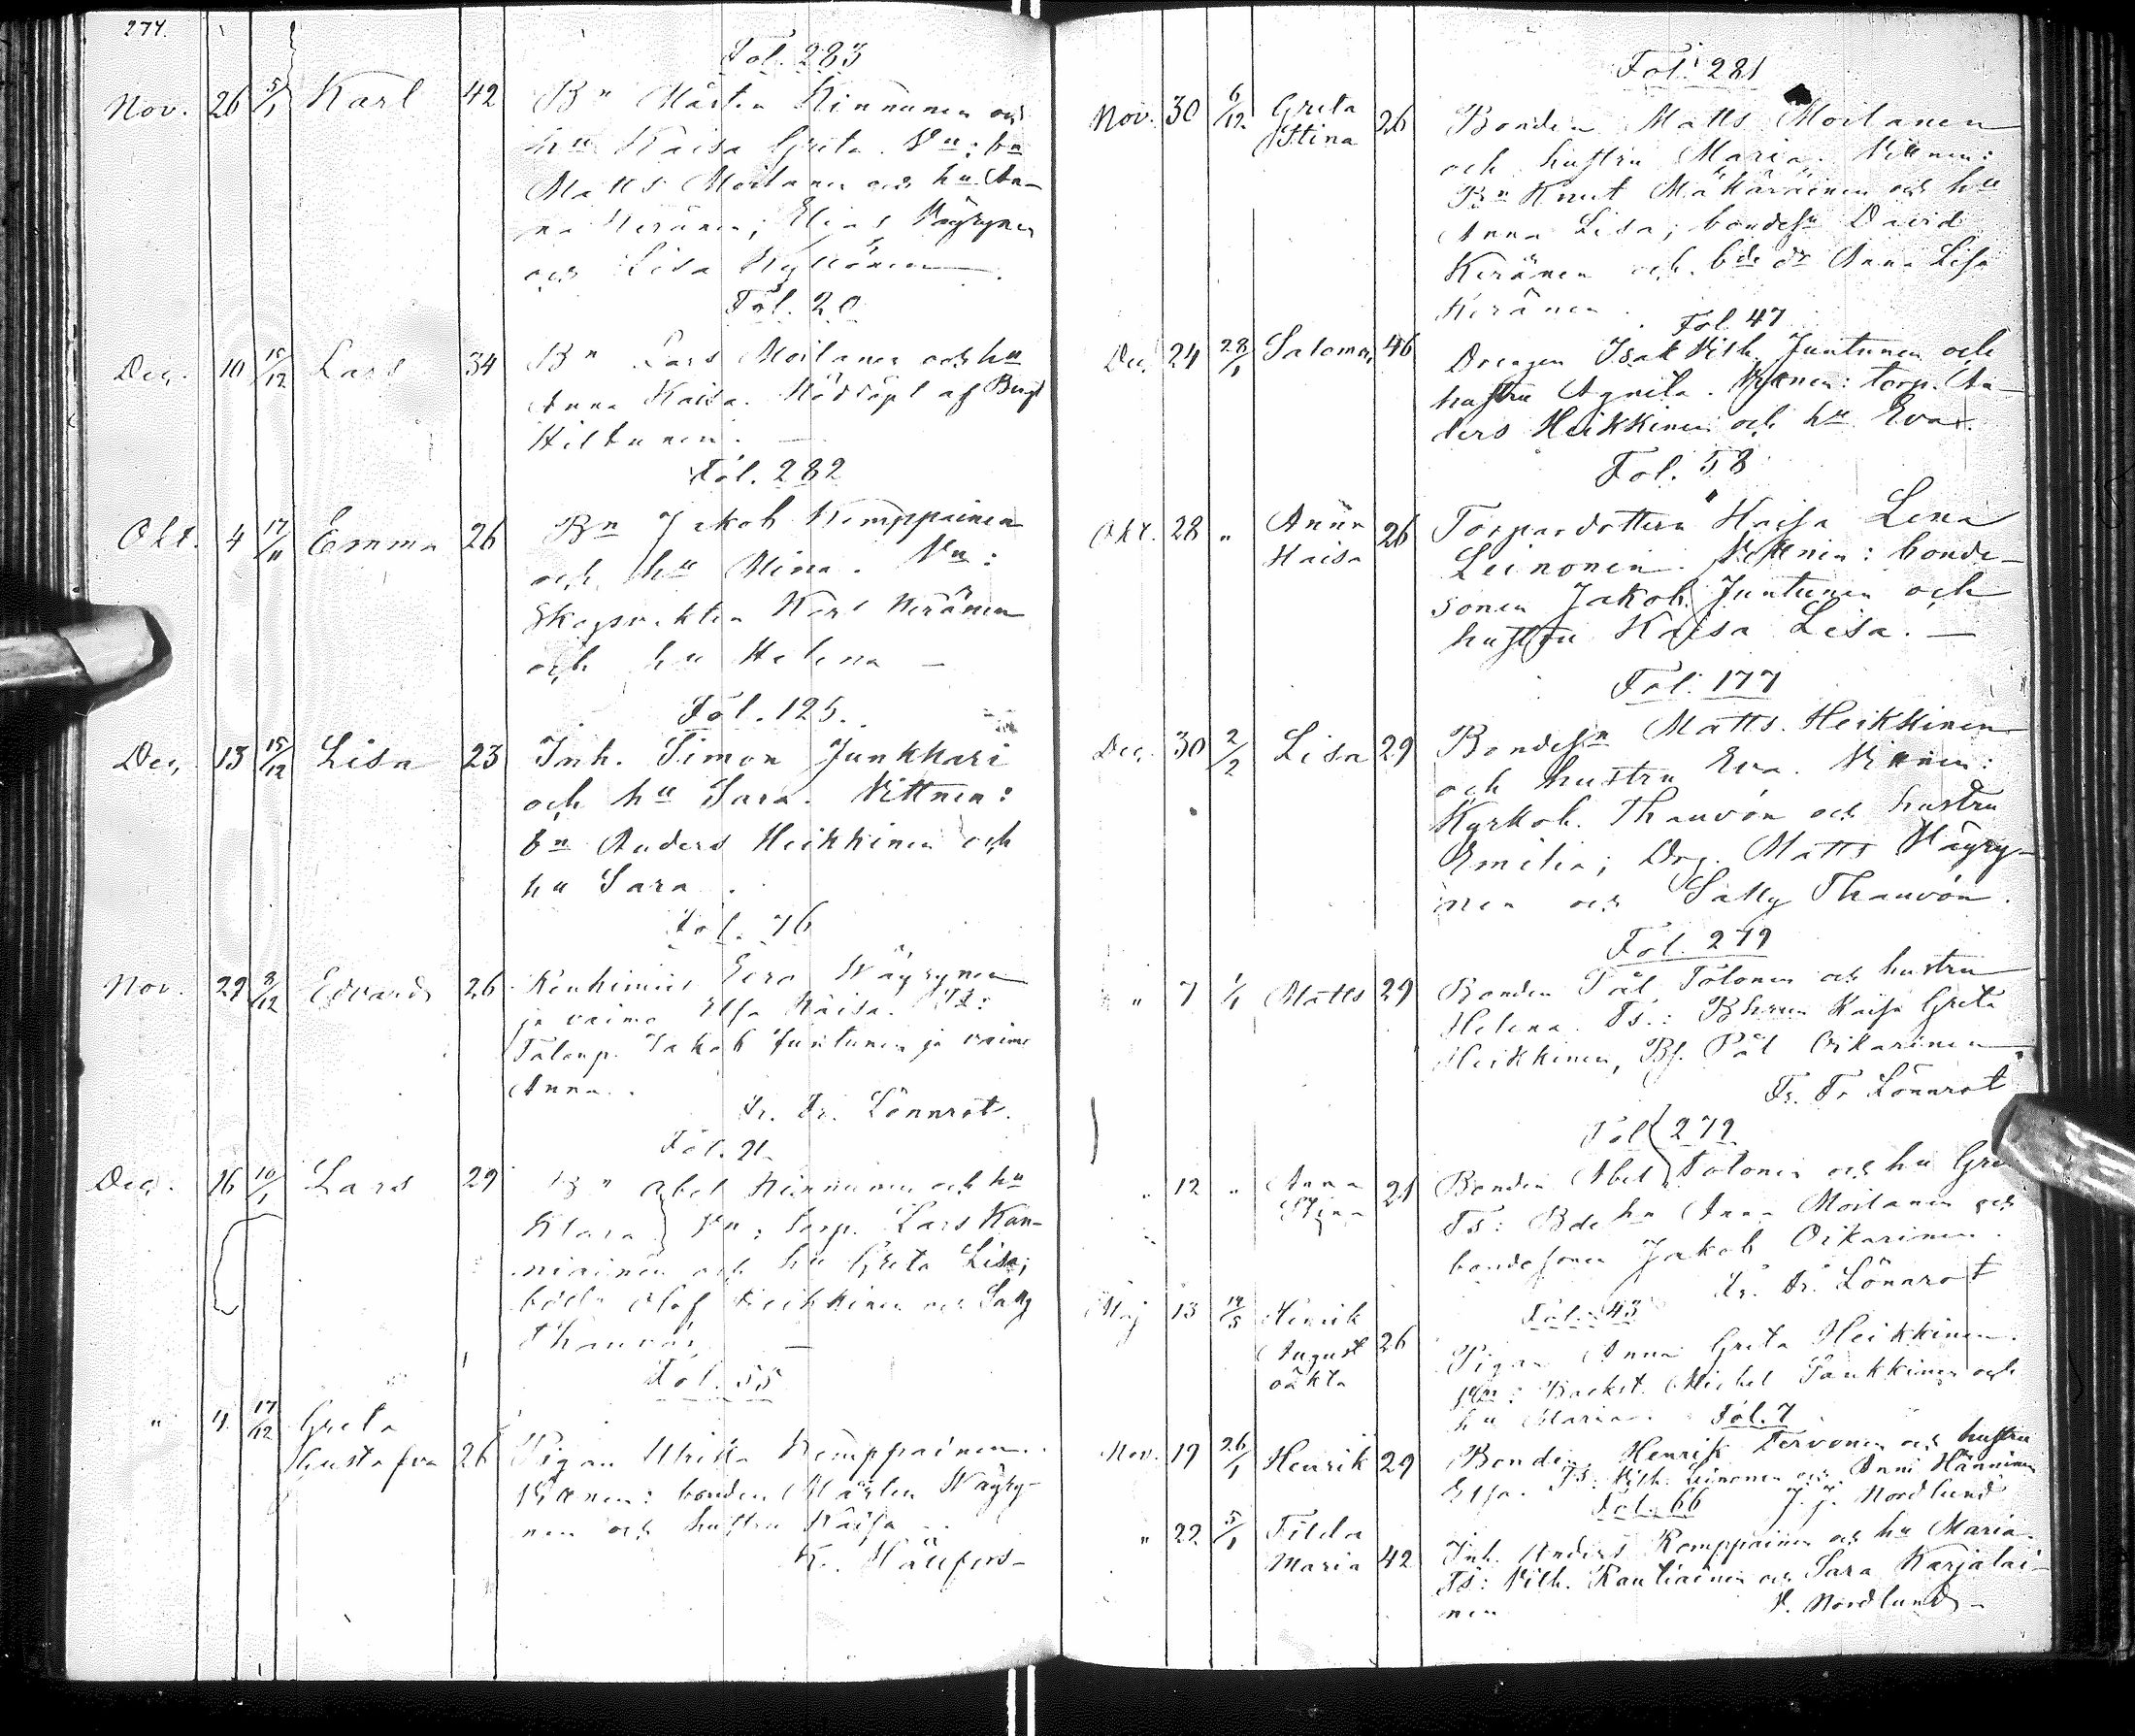 274.
Fol. 283
Nov. 26 5/1 Karl 42 Bn Mårten Kinnunen och
hu Kaisa Greta. Vn: bn
Matts Moilanen och hu An-
na Keränen; Elias Väyrynen
och Lisa Kyllönen
Fol. 20
Dec. 10 10/12 Lars 34 Bn Lars Moilanen och hu
Anna Kaisa. Nöddöpt af Bengt
Hiltunen.
Fol. 282
Okt. 4 17/11 Emma 26 Bn Jakob Kemppainen
och hu Mina. Vn:
Skogsvakten Karl Keränen
och hu Helena
Fol. 125.
Dec. 13 15/12 Lisa 23 Inh. Simon Junkkari
och hu Sara. Vittnen:
bn Anders Heikkinen och
hu Sara.
Fol. 76
Nov. 29 8/12 Edvard 26 Kenhimies Eero Wäyrynen
ja vaimo Elsa Kaisa.
Talonp. Jakob Juntunen ja vaimo
Anna.
Fr. Fr. Lönnrot.
Fol. 21.
Dec. 16 10/1 Lars 29 Bn Abel Kinnunen och hu
Klara Vn: torp. Lars Kan-
niainen och hu Greta Lisa;
Olof Heikkinen och Sally
Thauvón
Fol. 55
" 4. 17/12 Greta
Gustafva 26 Pigan Ulrika Kemppainen.
Vittnen: bonden Mårten Wäyry-
nen och hustru Kaisa
K. Hällfors
Fol. 281
Nov. 30 6/12 Greta
Stina 26 Bonden Matts Moilanen
och hustru Maria. Vittnen:
Bn Knut Mäkäräinen och hu
Anna Lisa; bondesn David
Keränen och bde dr Anna Lisa
Keränen.
Fol 47
Dec. 24 28/1 Salomon 46 Drengen Isak Vilh. Juntunen och
hustru Agneta. Vittnen: torp. An-
ders Heikkinen och hu Eva.
Fol. 58
Okt. 28 " Anna
Kaisa 26 Torpardottern Kaisa Lena
Leinonen. Vittnen: bonde-
sonen Jakob Juntunen och
hustru Kaisa Lisa.
Fol. 177
Dec. 30 2/2 Lisa 29 Bondesn Matts Heikkinen
och hustru Eva. Vittnen:
Kyrkoh. Thauvón och hustru
Emilia; Drg. Matts Väyry-
nen och Sally Thauvón.
Fol. 279
" 7 1/1 Matts 29 Bonden Pål Tolonen och hustru
Helena. Ts.: Kaisa Greta
Heikkinen, Bs. Pål Oikarinen
Fr. Fr Lönnrot
Fol 272
" 12 " Anna
Stina 21 Bonden Abel Tolonen och hu
Ts: Bde hu Anna Moilanen och
bondesonen Jakob Oikarinen.
Fr. Fr. Lönnrot
Fol. 43
Maj 13 14/5 Henrik
August
oäkta 26 Pigan Anna Greta Heikkinen.
Vn: Backst. Michel Pankkinen och
hu Maria.
Fol. 7
Nov. 19 26/1 Henrik 29 Bonden Henrik Tervonen och hustru
Elsa. Ts. Vilh. Leinonen och Anni Hänninen
J. J. Nordlund
Fol. 66
" 22 5/1 Tilda
Maria 42 Inh. Anders Komppainen och hu Maria.
Ts: Vilh. Rautiainen och Sara Karjalai-
nen J. Nordlund